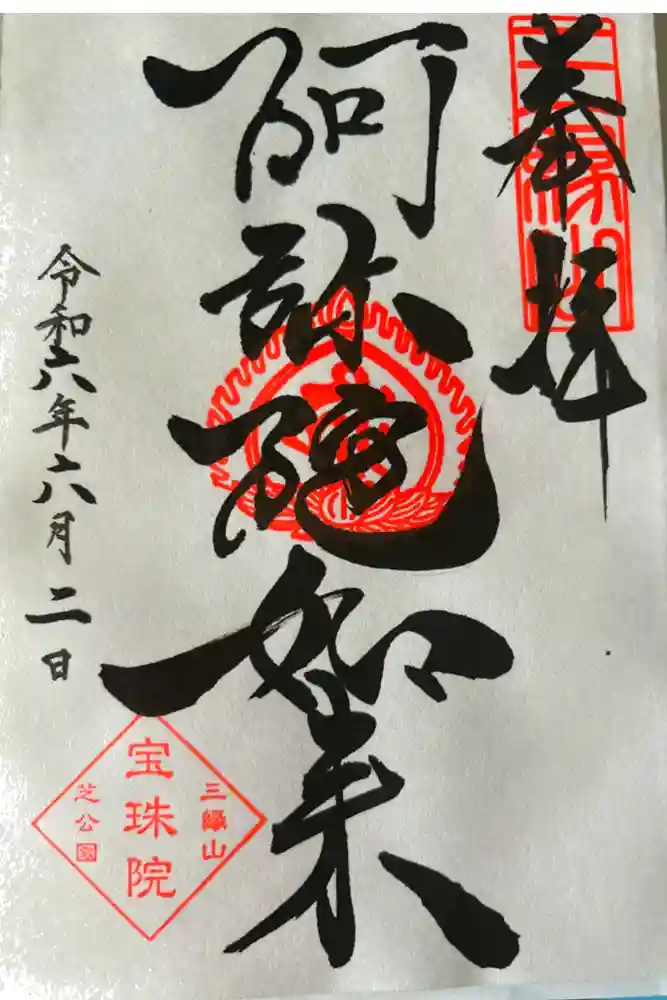 奉拝
三縁山
阿弥陀如来
令和六年六月二日
三縁山
宝珠院
芝公園